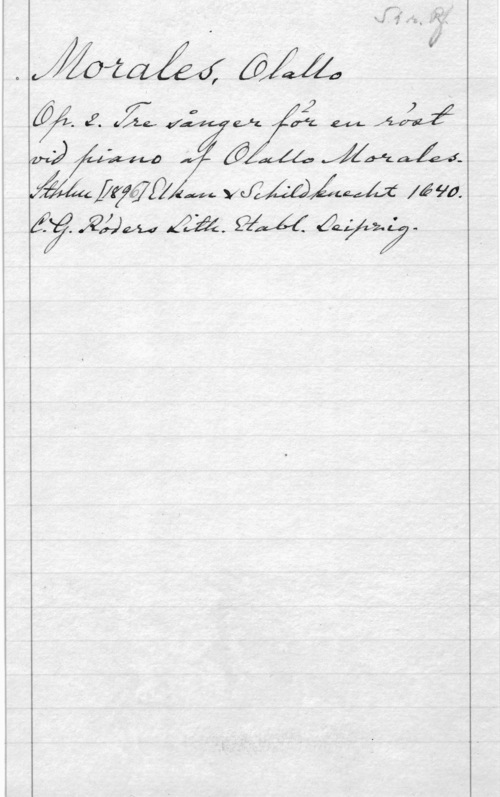 Morales, Olallo
Op. 2. Tre sånger för en röst
vid piano af Olallo Morales.
Sthlm [1896] Elkan & Schildknecht 1640.
C. G. Röders Lith. Etabl. Leipzig.